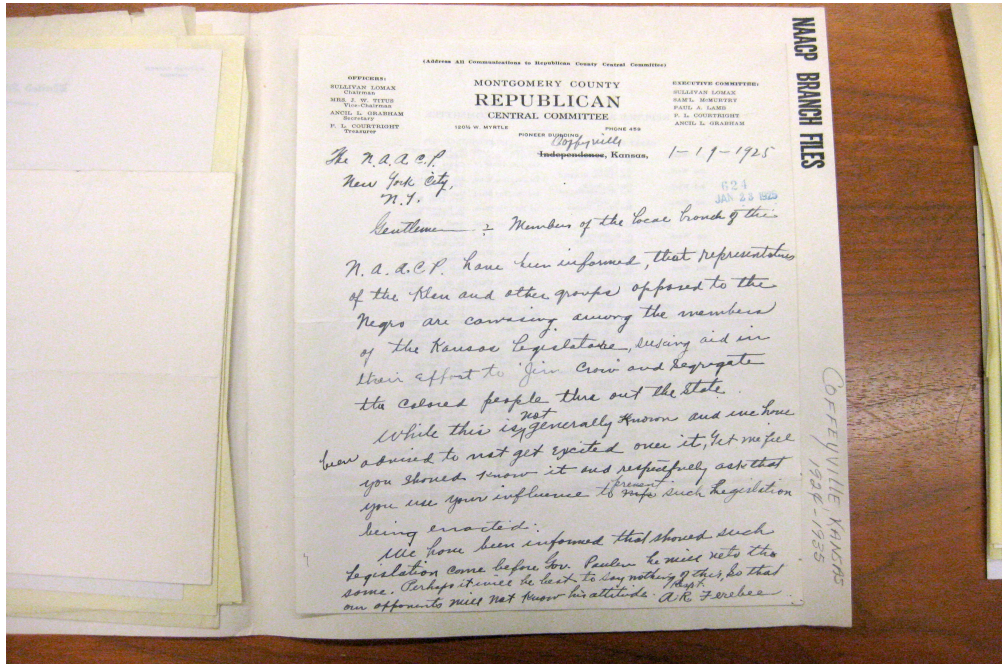 (Address All Communications to Republican County Central Committee)
OFFICERS:
SULLIVAN LOMAX
Chairman
MRS. J. W. TITUS
Vice-Chairman
ANCIL L. GRABHAM
Secretary
P. L. COURTRIGHT
Treasurer
MONTGOMERY COUNTY
REPUBLICAN
CENTRAL COMMITTEE
120½ W. MYRTLE PHONE 453
PIONEER BUILDING
EXECUTIVE COMMITTEE:
SULLIVAN LOMAX
SAM'L McMURTRY
PAUL A. LAMB
P. L. COURTRIGHT
ANCIL L. GRABHAM
Coffyville
Independence, Kansas, 1-19-1925
The N.A.A.C.P.
New York City,
N.Y.
624
JAN 23 1925
Gentlemen :- Members of the local branch of the
N.A.A.C.P. have been informed, that representatives
of the Klan and other groups opposed to the
Negro are canvasing among the members
of the Kansas Legislature, seeking aid in
their effort to Jim Crow and Segregate
the colored people thru out the State.
While this is not generally known and we have
been advised to not get excited over it, Yet we feel
you should know it and respectfully ask that
you use your influence to prevent such Legislation
being enacted.
We have been informed that should such
Legislation come before Gov. Paulen he will veto the
same. Perhaps it will be best to say nothing of this, so that
our opponents will not know his attitude. Respt.
A R Ferebee
NAACP BRANCH FILES
COFFEYVILLE, KANSAS
1924-1935